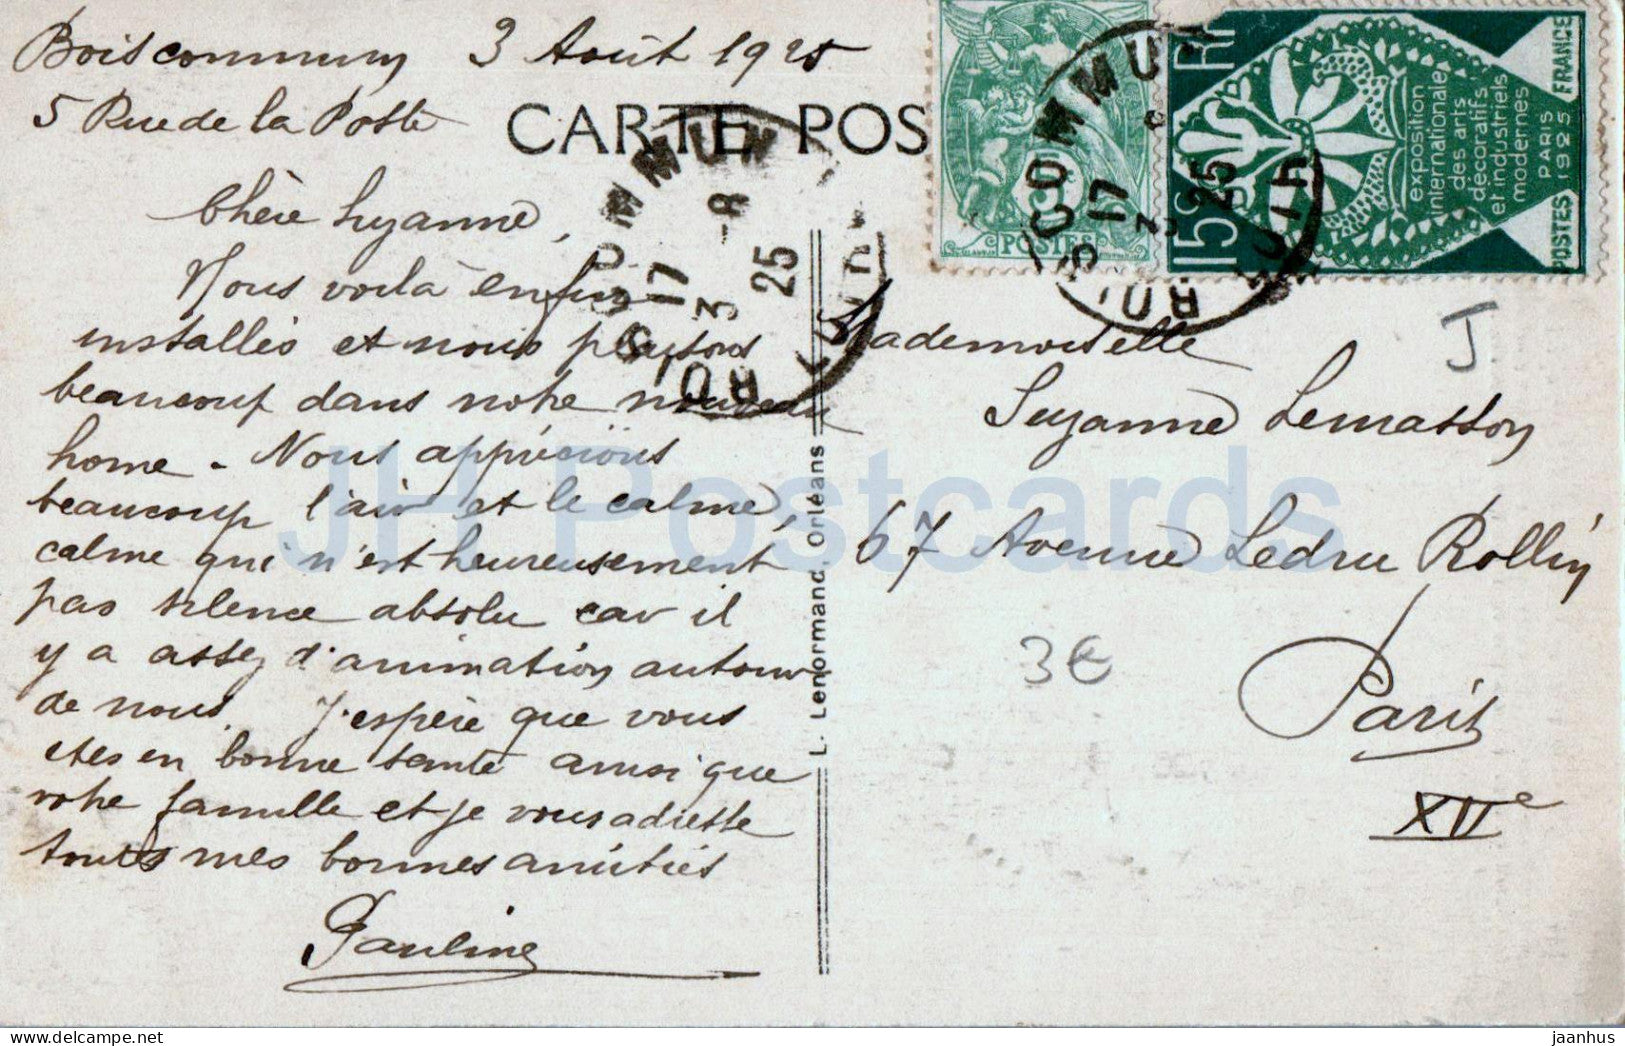 Boiscommun 3 Août 1925
5 Rue de la Poste
CARTE POS
Chère Suzanne,
Nous voilà enfin
installés et nous plaisons
beaucoup dans notre nouveau
home. Nous apprécions
beaucoup l'air et le calme,
calme qui n'est heureusement
pas silence absolu car il
y a assez d'animation autour
de nous. J'espère que vous
êtes en bonne santé ainsi que
votre famille et je vous adresse
toutes mes bonnes amitiés
Pauline
L. Lenormand, Orléans
Mademoiselle
Suzanne Lemasson
67 Avenue Ledru Rollin
Paris
XIIe
J
3€
BOISCOMMUN
17
3 -8
25
LOIRET
POSTES
5
BOISCOMMUN
17
3 8
25
LOIRET
15c RF
exposition
internationale
des arts
décoratifs
et industriels
modernes
PARIS
1925
POSTES FRANCE
JH Postcards
jaanhus